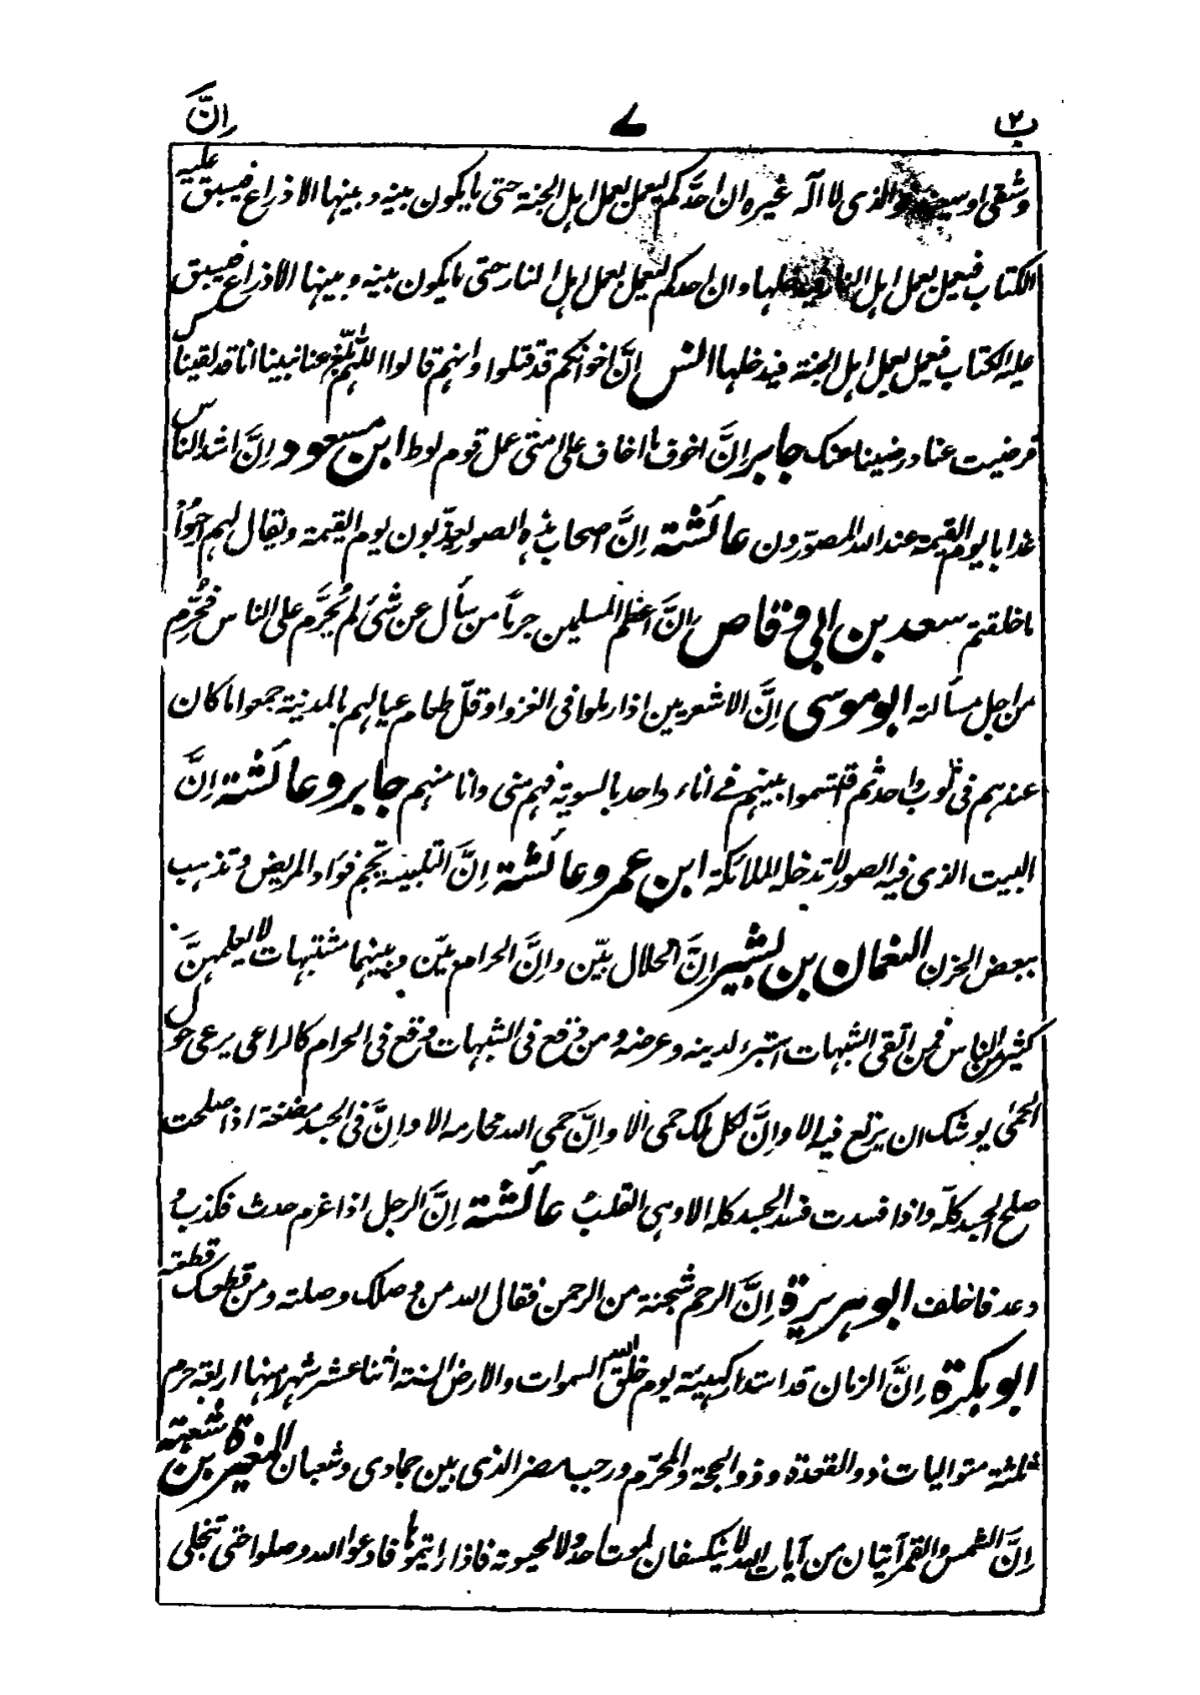 ب٢ ٧ اِنَّ
وشقی او سعید والذی لا اله غیره ان احدکم لیعمل بعمل اهل الجنة حتی ما یکون بینه و بینها الا ذراع فیسبق علیه
الکتاب فیعمل بعمل اهل النار فیدخلها وان احدکم لیعمل بعمل اهل النار حتی ما یکون بینه و بینها الا ذراع فیسبق
علیه الکتاب فیعمل بعمل اهل الجنة فیدخلها انس اِنَّ اخوانکم قد قتلوا وانهم قالوا اللّٰهم بلّغ عنا نبینا انا قد لقیناک
فرضیت عنا ورضینا عنک جابر اِنَّ اخوف ما اخاف علی امتی عمل قوم لوط ابن مسعود اِنَّ اشد الناس
عذابا یوم القیمة عند الله المصوّرون عائشة اِنَّ اصحاب هذه الصور یعذّبون یوم القیمة ویقال لهم احیُوا
ما خلقتم سعد بن ابی وقاص اِنَّ اعظم المسلمین جرماً من سأل عن شئ لم یُحرَّم علی الناس فحُرِّم
من اجل مسألته ابو موسی اِنَّ الاشعریین اذا ارملوا فی الغزو او قلّ طعام عیالهم بالمدینة جمعوا ما کان
عندهم فی ثوب واحد ثم اقتسموا بینهم فی اناء واحد بالسویة فهم منی وانا منهم جابر و عائشة اِنَّ
البیت الذی فیه الصور لا تدخله الملائکة ابن عمر و عائشة اِنَّ التلبینة تجم فواد المریض و تذهب
ببعض الحزن النعمان بن بشیر اِنَّ الحلال بیّن واِنَّ الحرام بیّن وبینهما مشتبهات لا یعلمهنَّ
کثیر من الناس فمن اتقی الشبهات استبرء لدینه وعرضه ومن وقع فی الشبهات وقع فی الحرام کالراعی یرعی حول
الحمٰی یوشک ان یرتع فیه الا واِنَّ لکل ملک حمی الا واِنَّ حمی الله محارمه الا واِنَّ فی الجسد مضغة اذا صلحت
صلح الجسد کلّه واذا فسدت فسد الجسد کله الا وهی القلبُ عائشة اِنَّ الرجل اذا غرم حدث فکذب و
وعد فاخلف ابو هریرة اِنَّ الرحم شجنة من الرحمن فقال الله من وصلک وصلته ومن قطعک قطعته
ابو بکرة اِنَّ الزمان قد استدار کهیئته یوم خلق الله السموات والارض السنة اثنا عشر شهرا منها اربعة حرم
ثلثة متوالیات ذو القعدة وذو الحجة والمحرّم ورجب مضر الذی بین جمادی وشعبان المغیرة بن شعبة
اِنَّ الشمس والقمر آیتان من آیات الله لا ینکسفان لموت احد ولا لحیوته فاذا رایتموها فادعوا الله وصلوا حتی تنجلی